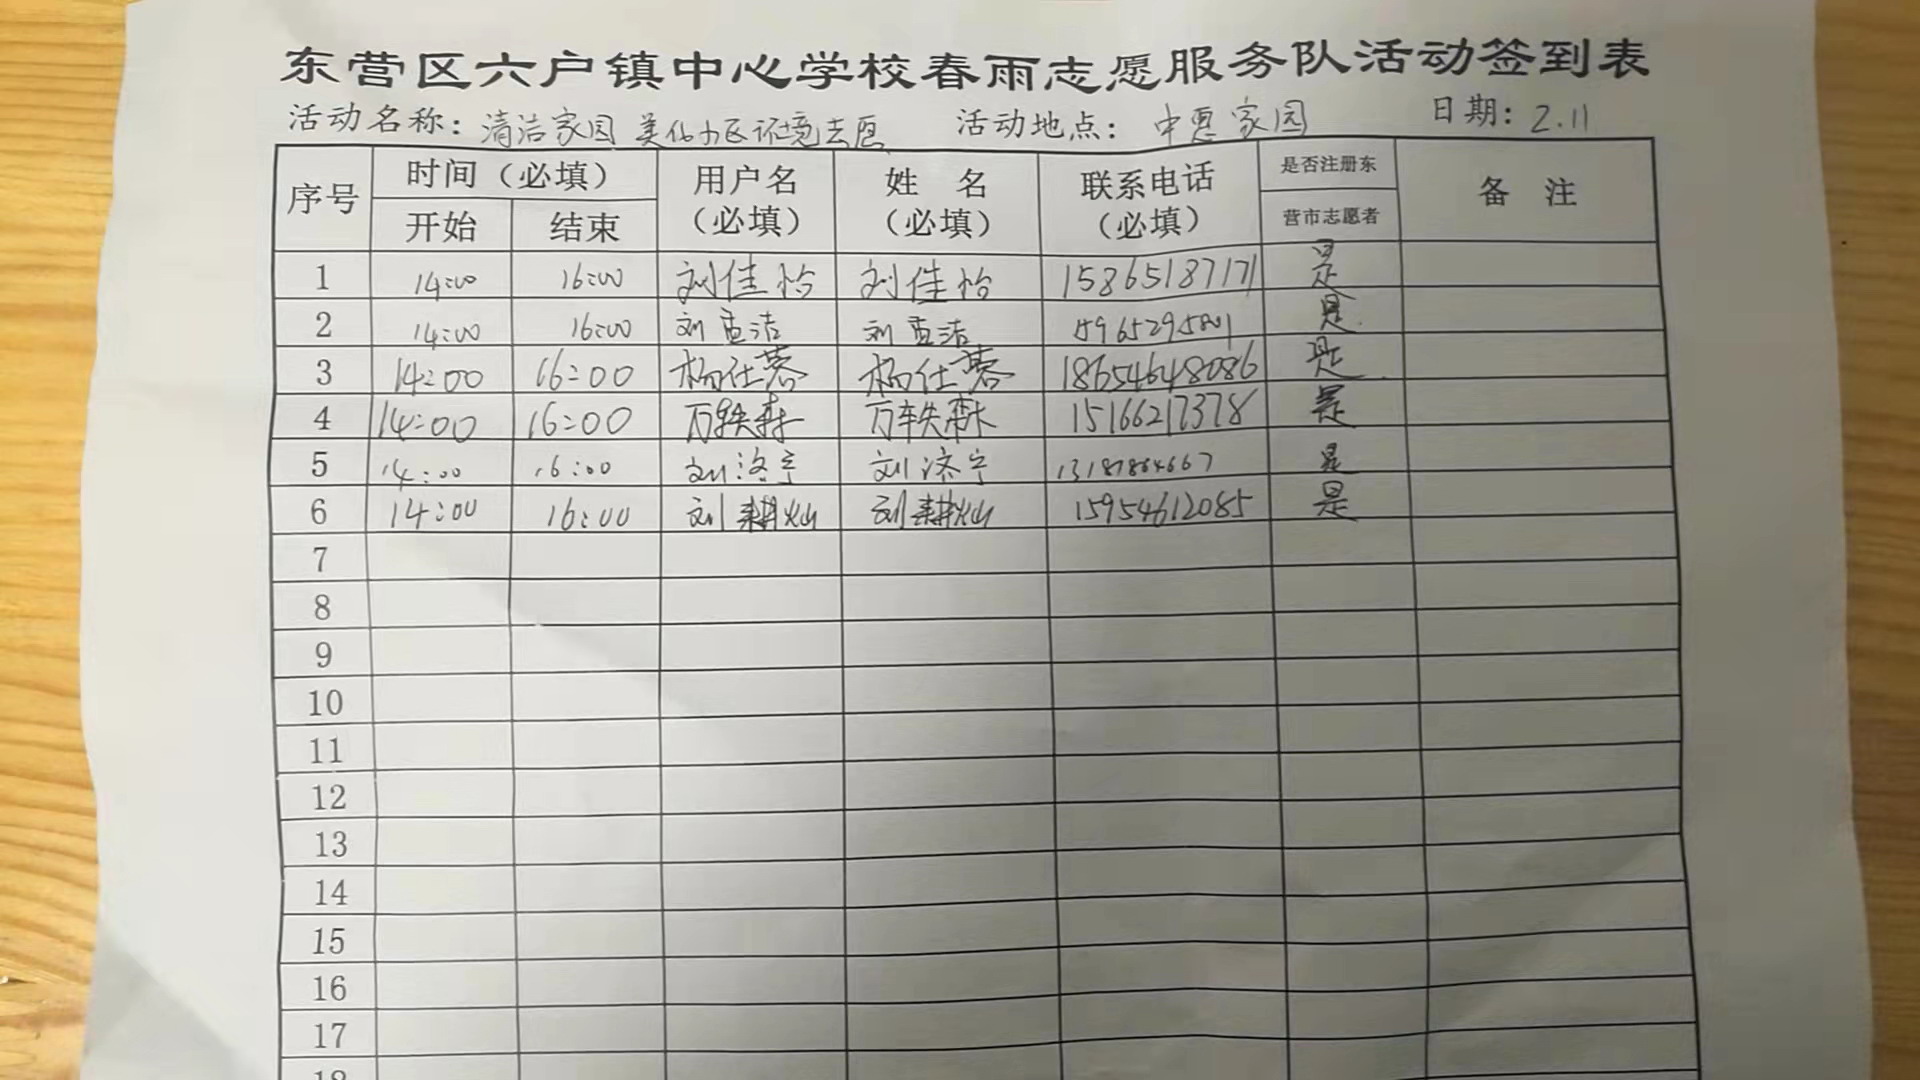 东营区六户镇中心学校春雨志愿服务队活动签到表
活动名称：清洁家园 美化小区环境志愿 活动地点：中惠家园 日期：2.11
序号 时间（必填） 用户名（必填） 姓 名（必填） 联系电话（必填） 是否注册东营市志愿者 备 注
开始 结束
1 14:00 16:00 刘佳怡 刘佳怡 15865187171 是
2 14:00 16:00 刘孟洁 刘孟洁 是
3 14:00 16:00 杨仕蓉 杨仕蓉 18654648086 是
4 14:00 16:00 万轶森 万轶森 15166217378 是
5 14:00 16:00 刘洛宁 刘济宁 是
6 14:00 16:00 刘耕灿 刘耕灿 15954612085 是
7
8
9
10
11
12
13
14
15
16
17
18